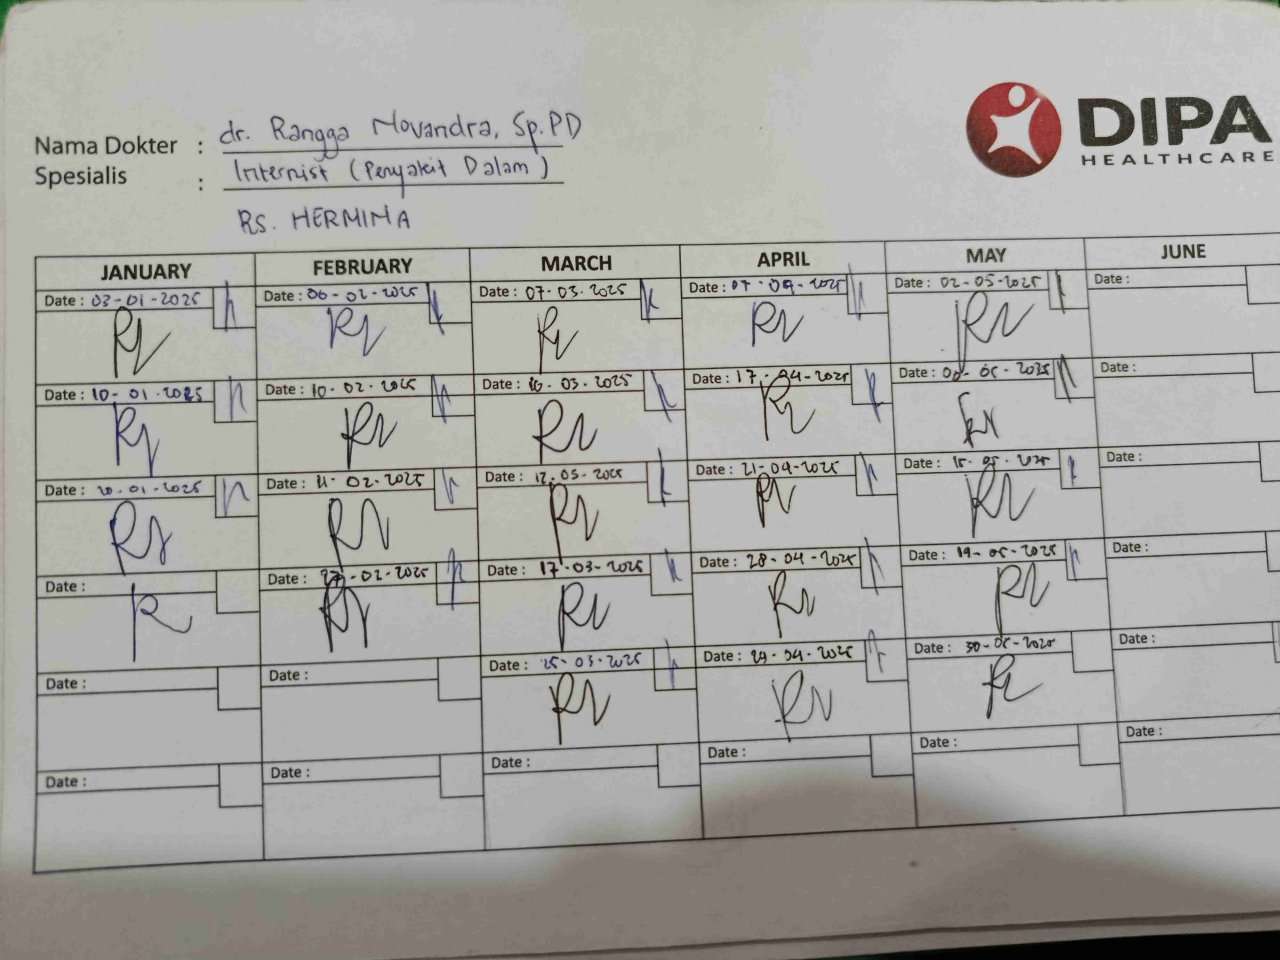 DIPA
HEALTHCARE
Nama Dokter : dr. Rangga Novandra, Sp.PD
Spesialis : Internist (Penyakit Dalam)
RS. HERMINA
JANUARY FEBRUARY MARCH APRIL MAY JUNE
Date : 03-01-2025 Date : 06-02-2025 Date : 07-03-2025 Date : 07-04-2025 Date : 02-05-2025 Date :
Date : 10-01-2025 Date : 10-02-2025 Date : 10-03-2025 Date : 17-04-2025 Date : -05-2025 Date :
Date : 20-01-2025 Date : 11-02-2025 Date : 12-03-2025 Date : 21-04-2025 Date : 15-05-2025 Date :
Date : Date : 27-02-2025 Date : 17-03-2025 Date : 28-04-2025 Date : 19-05-2025 Date :
Date : Date : Date : 25-03-2025 Date : 29-04-2025 Date : 30-05-2025 Date :
Date : Date : Date : Date : Date : Date :